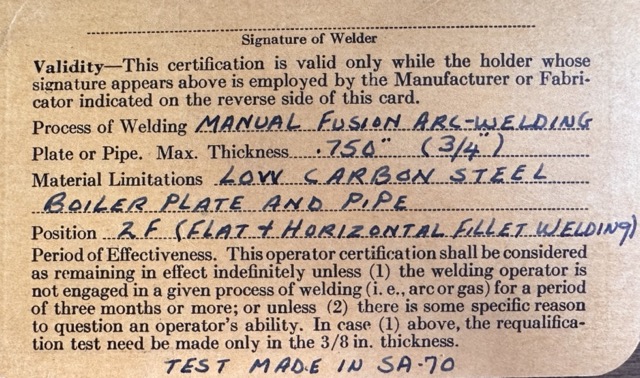 Signature of Welder
Validity—This certification is valid only while the holder whose
signature appears above is employed by the Manufacturer or Fabri-
cator indicated on the reverse side of this card.
Process of Welding MANUAL FUSION ARC-WELDING
Plate or Pipe. Max. Thickness .750" (3/4")
Material Limitations LOW CARBON STEEL
BOILER PLATE AND PIPE
Position 2F (FLAT + HORIZONTAL FILLET WELDING)
Period of Effectiveness. This operator certification shall be considered
as remaining in effect indefinitely unless (1) the welding operator is
not engaged in a given process of welding (i. e., arc or gas) for a period
of three months or more; or unless (2) there is some specific reason
to question an operator's ability. In case (1) above, the requalifica-
tion test need be made only in the 3/8 in. thickness.
TEST MADE IN SA-70